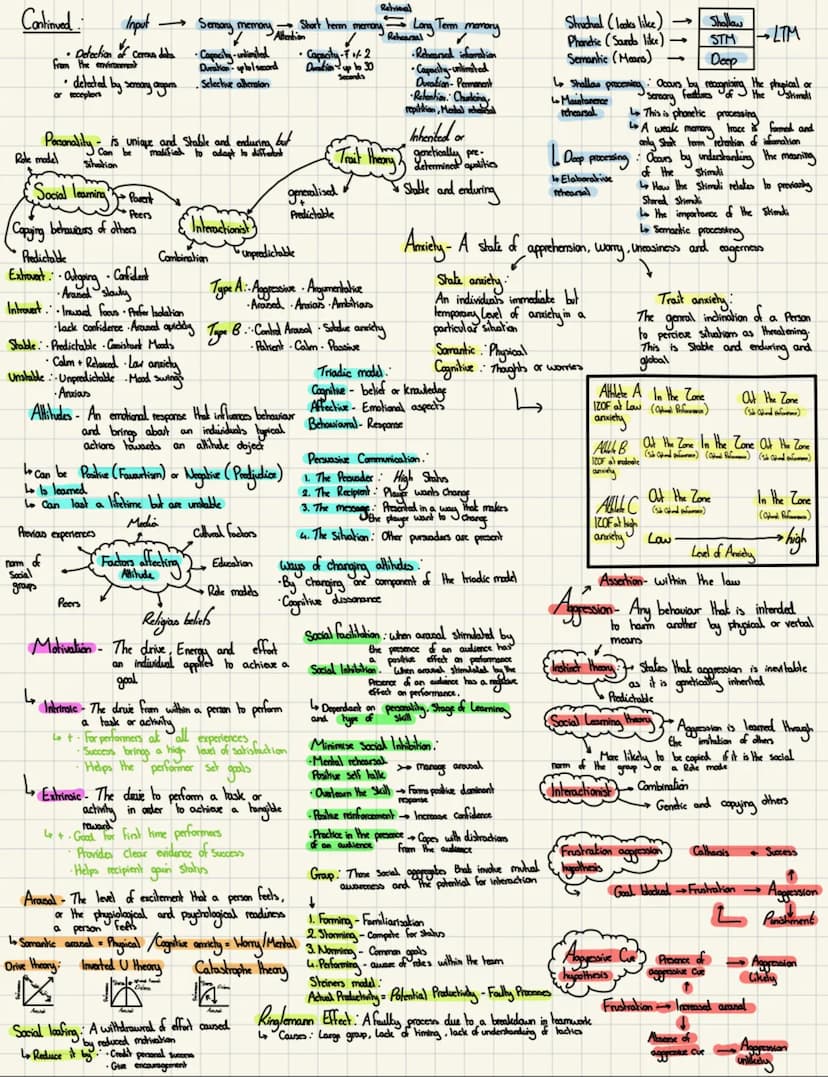 Continued:
Input → Sensory memory → Short term memory ⇄ Long Term memory
Attention
Retrieval
Rehearsal
· Detection of Census data
from the environment
· detected by sensory organs
or receptors
· Capacity - unlimited
Duration - up to 1 second
· Selective attension
· Capacity - 7 +/- 2
Duration - up to 30
seconds
· Rehearsed information
· Capacity - unlimited
Duration - Permanent
· Retention: Chunking,
repitition, Mental rehearsal
Structural (looks like) → Shallow
Phonetic (Sounds like) → STM → LTM
Semantic (Means) → Deep
↳ Shallow processing: Occurs by recognising the physical or
sensory features of the Stimuli
↳ Maintanence
rehearsal
↳ This is phonetic processing
↳ A weak memory trace is formed and
only Short term retention of information
↳ Deep processing: Occurs by understanding the meaning
of the Stimuli
↳ Elaborative
rehearsal
↳ How the Stimuli relates to previously
Stored Stimuli
↳ The importance of the Stimuli
↳ Semantic processing
Personality - is unique and Stable and enduring but
Can be modified to adapt to different
situation
Role model
Social learning
Parent
Peers
Copying behaviours of others
Predictable
Interactionist
Combination
Unpredictable
Trait theory
Inherited or
genetically pre-
determined qualities
Stable and enduring
generalised
+
Predictable
Extrovert: · Outgoing · Confident
· Aroused Slowly
Introvert: · Inward focus · Prefer Isolation
· Lack Confidence · Aroused quickly
Stable: · Predictable · Consistant Moods
· Calm + Relaxed · Low anxiety
Unstable: · Unpredictable · Mood swings
· Anxious
Type A: · Aggressive · Argumentative
· Aroused · Anxious · Ambitious
Type B: · Control Arousal · Subdue anxiety
· Patient · Calm · Passive
Anxiety - A state of apprehension, worry, uneasiness and eagerness
State anxiety:
An individuals immediate but
temporary level of anxiety in a
particular situation
Somantic: Physical
Cognitive: Thoughts or worries
Trait anxiety:
The genral inclination of a Person
to percieve situations as threatening.
This is Stable and enduring and
global
Athlete A
IZOF at Low
anxiety
In the Zone
(Optimal Performance)
Out the Zone
(Sub Optimal performance)
Athlete B
IZOF at moderate
anxiety
Out the Zone In the Zone Out the Zone
(Sub Optimal performance) (Optimal Performance) (Sub Optimal performance)
Athlete C
IZOF at high
anxiety
Out the Zone
(Sub Optimal performance)
In the Zone
(Optimal Performance)
Low → high
Level of Anxiety
Attitudes - An emotional response that influences behaviour
and brings about an individuals typical
actions towards an attitude object
↳ Can be Positive (Favourtism) or Negative (Predjudice)
↳ Is learned
↳ Can last a lifetime but are unstable
Triadic model:
Cognitive - belief or knowledge
Affective - Emotional aspects
Behavioural - Response
Persuasive Communication:
1. The Persuader: High Status
2. The Recipient: Player wants change
3. The message: Presented in a way that makes
the player want to change
4. The Situation: Other pursuaders are present
Factors affecting
Attitude
Media
Previous experiences
Cultural factors
norm of
Social
groups
Education
Role models
Peers
Religious beliefs
Ways of changing attitudes:
· By changing one component of the triadic model
· Cognitive dissonance
Motivation - The drive, Energy and effort
an individual applies to achieve a
goal
↳ Intrinsic - The drive from within a person to perform
a task or activity
↳ + · For performers at all experiences
· Success brings a high level of satisfaction
· Helps the performer set goals
↳ Extrinsic - The drive to perform a task or
activity in order to achieve a tangible
reward
↳ + · Good for first time performers
· Provides clear evidence of Success
· Helps recipient gain Status
Social facilitation: when arousal stimulated by
the presence of an audience has
a positive effect on performance
Social Inhibition: When arousal stimulated by the
Presence of an audience has a negative
effect on performance.
↳ Dependant on personality, Stage of Learning
and type of Skill
Minimise Social Inhibition:
· Mental rehearsal
Positive self talk
→ Manage arousal
· Overlearn the Skill → Forms positive dominant
response
· Positive reinforcement → Increase Confidence
· Practice in the presence
of an audience
→ Copes with distractions
from the audience
Assertion - within the law
Aggression - Any behaviour that is intended
to harm another by physical or verbal
means
Instinct theory: → States that aggression is inevitable
as it is genetically inherited
Predictable
Social Learning theory → Aggression is learned through
the imitation of others
More likely to be copied if it is the social
norm of the group or a Role mode
Interactionist → Combination
→ Genetic and copying others
Frustration aggression
hypothesis
Catharsis ← Success
Goal blocked → Frustration → Aggression
Punishment
Arousal - The level of excitement that a person feels,
or the physiological and psycological readiness
a person feels
↳ Somantic arousal = Physical / Cognitive anxiety = Worry/Mental
Drive theory:
Inverted U theory
Catastrophe theory
Arousal
Arousal
Arousal
Social loafing: A withdrawal of effort caused
by reduced motivation
↳ Reduce it by: · Credit personal success
· Give encouragement
Group: Those Social aggregates that involve mutual
awareness and the potential for interaction
1. Forming - Familiarisation
2. Storming - Compete for Status
3. Norming - Common goals
4. Performing - aware of roles within the team
Steiners model:
Actual Productivity = Potential Productivity - Faulty Processes
Ringlemann Effect: A faulty process due to a breakdown in teamwork
↳ Causes: Large group, Lack of timing, lack of understanding of tactics
Aggressive Cue
hypothesis
Presence of
aggressive Cue
→ Aggression
Likely
Frustration → Increased arousal
Absense of
aggressive Cue
→ Aggression
unlikely